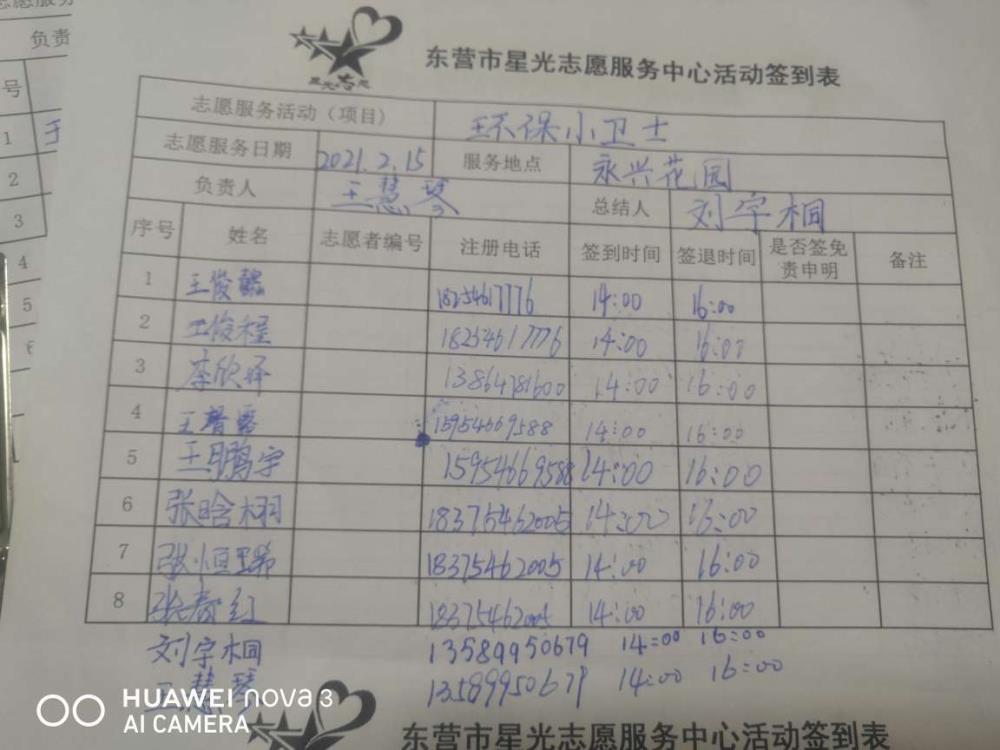 东营市星光志愿服务中心活动签到表
志愿服务活动（项目） 环保小卫士
志愿服务日期 2021.2.15 服务地点 永兴花园
负责人 王慧琴 总结人 刘宇桐
序号 姓名 志愿者编号 注册电话 签到时间 签退时间 是否签免责申明 备注
1 王俊懿 18254617776 14:00 16:00
2 王俊程 18254617776 14:00 16:00
3 李欣泽 13864781600 14:00 16:00
4 王 15954669588 14:00 16:00
5 王鹏宇 15954669588 14:00 16:00
6 张晗栩 18375462005 14:00 16:00
7 张恒瑞 18375462005 14:00 16:00
8 张春红 18375462005 14:00 16:00
刘宇桐 13589950679 14:00 16:00
王慧琴 13589950679 14:00 16:00
HUAWEI nova 3
AI CAMERA
东营市星光志愿服务中心活动签到表
负责
号
1 王
2
3
4
5